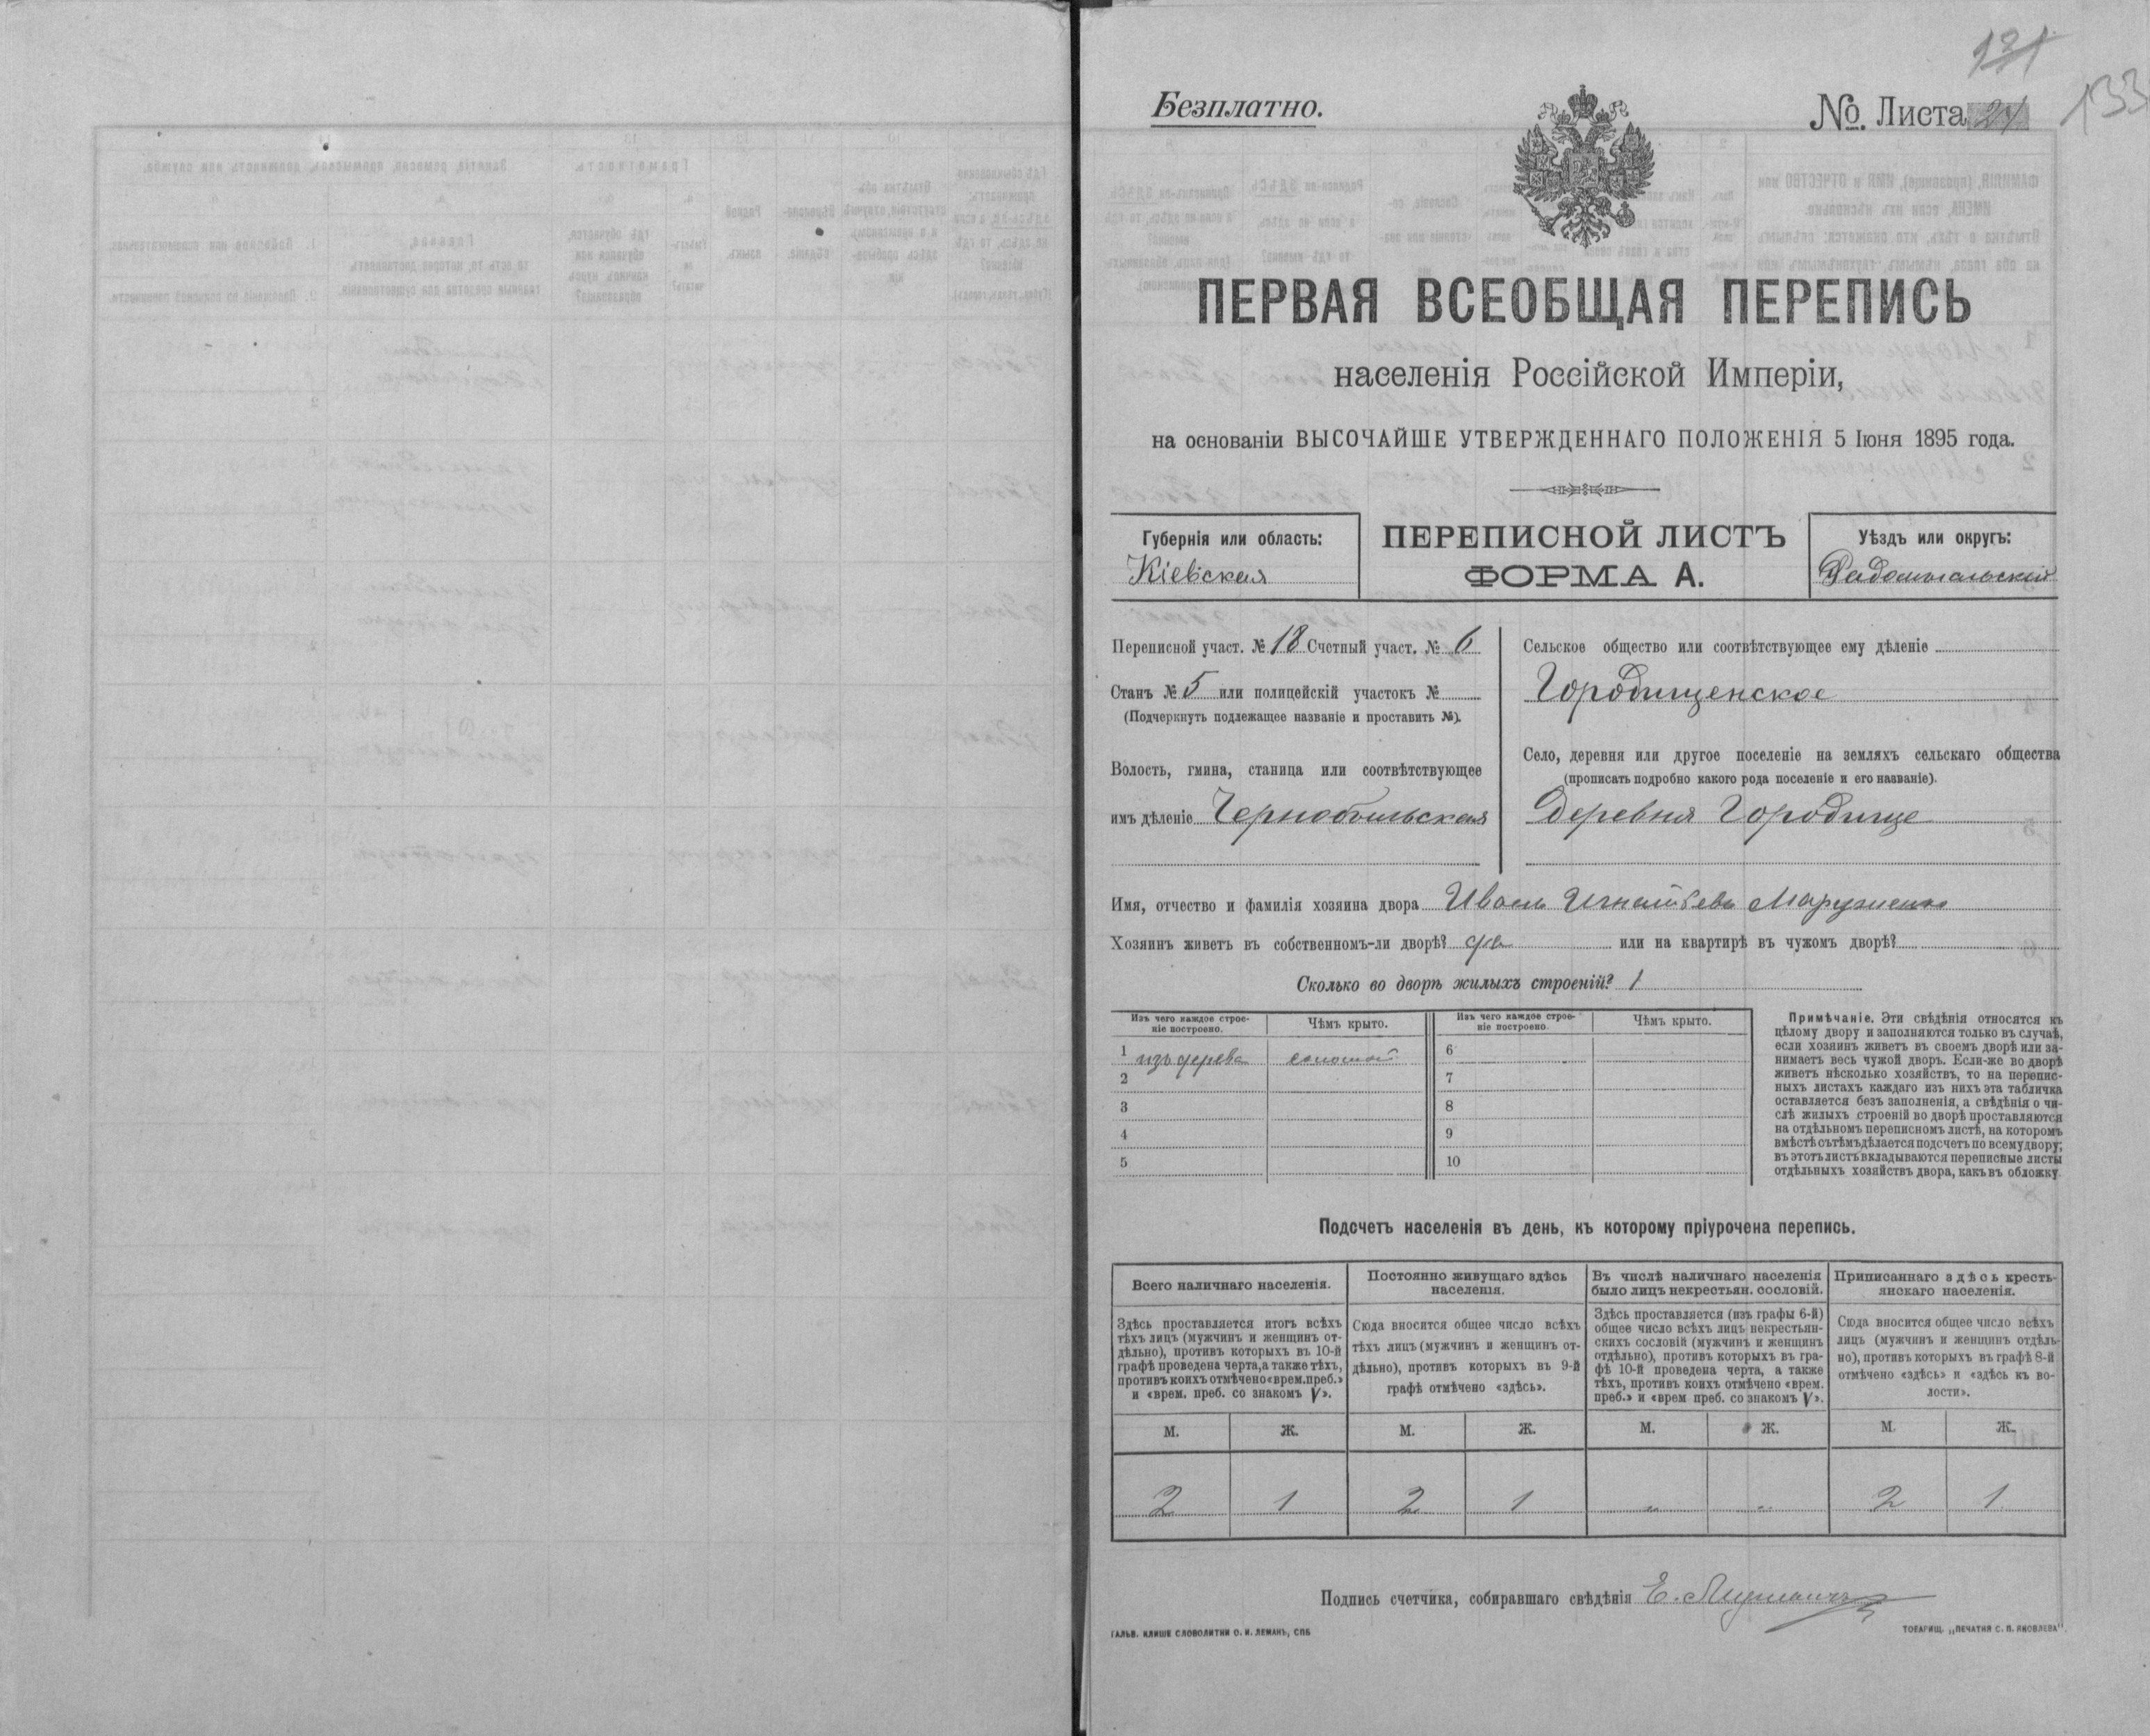 131
133
Безплатно.
№ Листа 24
ПЕРВАЯ ВСЕОБЩАЯ ПЕРЕПИСЬ
населенія Россійской Имперіи,
на основаніи ВЫСОЧАЙШЕ УТВЕРЖДЕННАГО ПОЛОЖЕНІЯ 5 Іюня 1895 года.
Губернія или область:
Кіевская
ПЕРЕПИСНОЙ ЛИСТЪ
ФОРМА А.
Уѣздъ или округъ:
Радомысльскій
Переписной участ. № 18 Счетный участ. № 6
Станъ № 5 или полицейскій участокъ №
(Подчеркнуть подлежащее названіе и проставить №).
Волость, гмина, станица или соотвѣтствующее
имъ дѣленіе Чернобыльская
Сельское общество или соотвѣтствующее ему дѣленіе
Городищенское
Село, деревня или другое поселеніе на земляхъ сельскаго общества
(прописать подробно какого рода поселеніе и его названіе).
Деревня Городище
Имя, отчество и фамилія хозяина двора Иванъ Игнатьевъ
Хозяинъ живетъ въ собственномъ-ли дворѣ? да или на квартирѣ въ чужомъ дворѣ?
Сколько во дворѣ жилыхъ строеній? 1
Изъ чего каждое строе-
ніе построено.
Чѣмъ крыто.
1 изъ дерева соломой
2
3
4
5
Изъ чего каждое строе-
ніе построено.
Чѣмъ крыто.
6
7
8
9
10
Примѣчаніе. Эти свѣдѣнія относятся къ
цѣлому двору и заполняются только въ случаѣ,
если хозяинъ живетъ въ своемъ дворѣ или за-
нимаетъ весь чужой дворъ. Если-же во дворѣ
живетъ нѣсколько хозяйствъ, то на перепис-
ныхъ листахъ каждаго изъ нихъ эта табличка
оставляется безъ заполненія, а свѣдѣнія о чи-
слѣ жилыхъ строеній во дворѣ проставляются
на отдѣльномъ переписномъ листѣ, на которомъ
вмѣстѣ съ тѣмъ дѣлается подсчетъ по всему двору;
въ этотъ листъ вкладываются переписные листы
отдѣльныхъ хозяйствъ двора, какъ въ обложку
Подсчетъ населенія въ день, къ которому пріурочена перепись.
Всего наличнаго населенія.
Здѣсь проставляется итогъ всѣхъ
тѣхъ лицъ (мужчинъ и женщинъ от-
дѣльно), противъ которыхъ въ 10-й
графѣ проведена черта, а также тѣхъ,
противъ коихъ отмѣчено «врем. преб.»
и «врем. преб. со знакомъ V».
М. Ж.
2 1
Постоянно живущаго здѣсь
населенія.
Сюда вносится общее число всѣхъ
тѣхъ лицъ (мужчинъ и женщинъ от-
дѣльно), противъ которыхъ въ 9-й
графѣ отмѣчено «здѣсь».
М. Ж.
2 1
Въ числѣ наличнаго населенія
было лицъ некрестьян. сословій.
Здѣсь проставляется (изъ графы 6-й)
общее число всѣхъ лицъ некрестьян-
скихъ сословій (мужчинъ и женщинъ
отдѣльно), противъ которыхъ въ гра-
фѣ 10-й проведена черта, а также
тѣхъ, противъ коихъ отмѣчено «врем.
преб.» и «врем преб. со знакомъ V».
М. Ж.
" "
Приписаннаго здѣсь кресть-
янскаго населенія.
Сюда вносится общее число всѣхъ
лицъ (мужчинъ и женщинъ отдѣль-
но), противъ которыхъ въ графѣ 8-й
отмѣчено «здѣсь» и «здѣсь къ во-
лости».
М. Ж.
2 1
Подпись счетчика, собиравшаго свѣдѣнія Е.
ГАЛЬВ. КЛИШЕ СЛОВОЛИТНИ О. И. ЛЕМАНЪ, СПБ
ТОВАРИЩ. „ПЕЧАТНЯ С. П. ЯКОВЛЕВА"